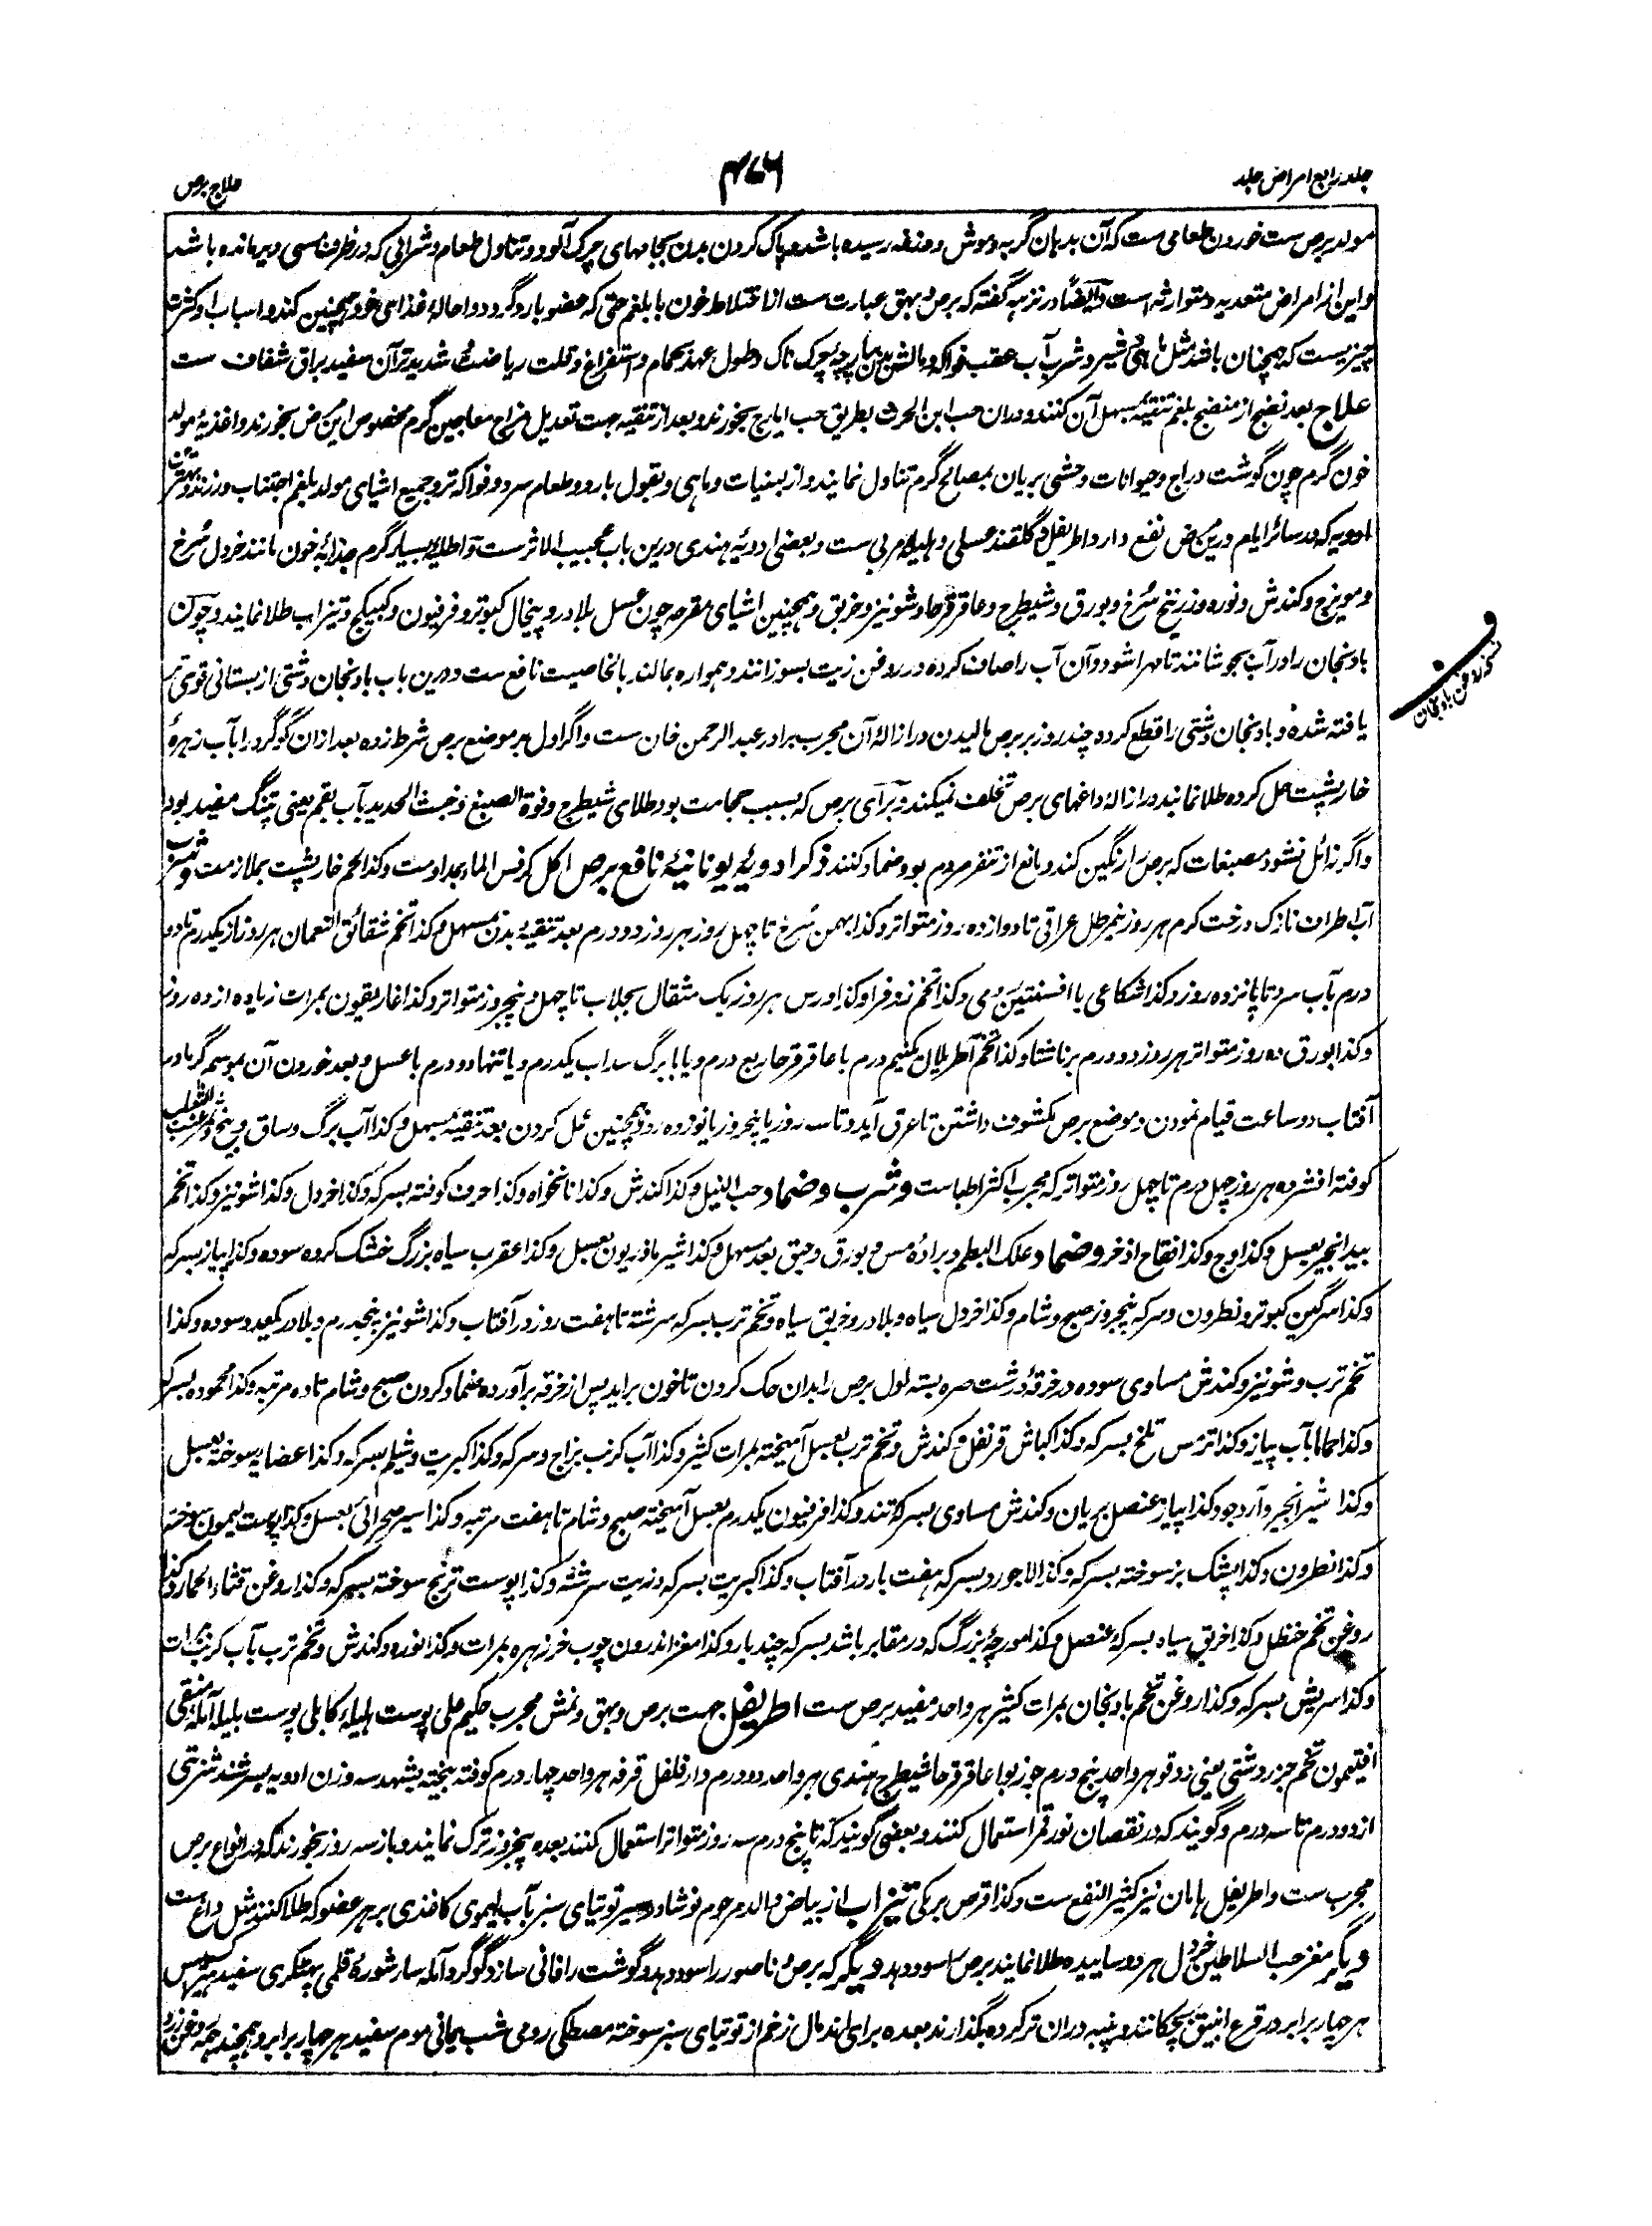 جلد رابع امراض جلد
۴۷۶
علاج برص
مولد برص ست خوردن طعامی ست که آن بدهان گربه و موش و منفه رسیده باشد و پاک کردن بدن بجامهای چرک آلود و تناول طعام و شرابی که در ظرف مسی دیر مانده باشد
و این از امراض متعدیه و متوارثه است و ایضاً در نزهه گفته که برص و بهق عبارت ست از اختلاط خون با بلغم حتی که عضو بارد گردد و احاله غذای خود همچنین کند و اسباب او کثرت
چیزیست که همچنان باشد مثل ماهی و شیر و شرب آب عقب فواکه و مالش بدن بپارچهٔ چرک ناک و طول عهد بحمام و استفراغ و قلت ریاضت و شدیدتر آن سفید براق شفاف ست
علاج بعد نضج از منضج بلغم تنقیه بمسهل آن کنند و دران حب ابن الحرث بطریق حب ایارج بخورند و بعد از تنقیه جهت تعدیل مزاج معاجین گرم مخصوص این مرض بخورند و اغذیهٔ مولد
خون گرم چون گوشت دراج و حیوانات وحشی بریان بمصالح گرم تناول نمایند و از لبنیات و ماهی و بقول بارد و طعام سرد و فواکه تر و جمیع اشیای مولد بلغم اجتناب ورزند و بهترین
ادویه که در سائر ایام درین مرض نفع دارد اطریفل و گلقند عسلی و هلیله مربی ست و بعضی ادویهٔ هندی درین باب عجیب الاثرست و اطلیهٔ بسیار گرم جذابهٔ خون مانند خردل سرخ
و مویزج و کندش و نوره و زرنیخ سرخ و بورق و شیطرج و عاقرقرحا و شونیز و خربق و همچنین اشیای مقرحه چون عسل بلادر و پیخال کبوتر و فرفیون و کبیکج و تیزاب طلا نمایند و چون
بادنجان را در آب بجوشانند تا مهرا شود و آن آب را صاف کرده در روغن زیت بسوزانند و همواره بمالند بالخاصیت نافع ست و درین باب بادنجان دشتی از بستانی قوی تر
نسخه روغن بادنجان
یافته شده و بادنجان دشتی را قطع کرده چند روز بر برص مالیدن در ازالهٔ آن مجرب برادر عبدالرحمن خان ست و اگر اول بر موضع برص شرط زده بعد ازان گوگرد را بآب زهرهٔ
خارپشت حل کرده طلا نمایند در ازالهٔ داغهای برص تخلف نمیکند و برای برص که بسبب حجامت بود طلای شیطرج و فوة الصبغ و خبث الحدید بآب بقم یعنی پتنگ مفید بود
و اگر زائل نشود مصبغات که برص را رنگین کند و مانع از تنفر مردم بود ضماد کنند ذکر ادویهٔ یونانیهٔ نافع برص اکل کرفس الماء بمداومت و کذا لحم خارپشت بملازمت و شرب
آب اطراف نازک درخت کرم هر روز نیم رطل عراقی تا دوازده روز متواتر و کذا بهمن سرخ تا چهل روز هر روز دو درم بعد تنقیهٔ بدن بمسهل و کذا تخم شقائق النعمان هر روز از یکدرم تا دو
درم بآب سرد تا پانزده روز و کذا شکاعی با افسنتین رومی و کذا تخم زوفرا و کذا ورس هر روز یک مثقال بجلاب تا چهل و پنج روز متواتر و کذا غاریقون بمرات زیاده از ده روز
و کذا بورق ده روز متواتر هر روز دو درم برناشتا و کذا تخم آطریلال یکنیم درم با عاقرقرحا ربع درم و یا با برگ سداب یکدرم و یا تنها دو درم با عسل و بعد خوردن آن بموسم گرما در
آفتاب دو ساعت قیام نمودن و موضع برص مکشوف داشتن تا عرق آید و تا سه روز یا پنجروز یا نوزده روز همچنین عمل کردن بعد تنقیه بمسهل و کذا آب برگ و ساق و بیخ و ثمر عنب الثعلب
کوفته افشرده هر روز چهل درم تا چهل روز متواتر که مجرب اکثر اطباست و شرب و ضماد حب النیل و کذا کندش و کذا نانخواه و کذا حرف کوفته بسرکه و کذا خردل و کذا شونیز و کذا تخم
بید انجیر بعسل و کذا وج و کذا فقاح اذخر و ضماد علک البطم و برادهٔ مس و بورق و حبق بعد مسهل و کذا شیر ماذریون بعسل و کذا عقرب سیاه بزرگ خشک کرده سوده و کذا پیاز بسرکه
و کذا سرگین کبوتر و نطرون و سرکه پنجروز صبح و شام و کذا خردل سیاه و بلادر و خربق سیاه و تخم ترب بسرکه سرشته تا هفت روز در آفتاب و کذا شونیز پنجدرم و بلادر یکعدد سوده و کذا
تخم ترب و شونیز و کندش مساوی سوده در خرقهٔ درشت صره بسته اول برص را بدان حک کردن تا خون براید پس از خرقه برآورده ضماد کردن صبح و شام تا ده مرتبه و کذا محموده بسرکه
و کذا حاما بآب پیاز و کذا ترمس تلخ بسرکه و کذا کباش قرنفل و کندش و تخم ترب بعسل آمیخته بمرات کثیر و کذا آب کرنب بزاج و سرکه و کذا کبریت و شیلم بسرکه و کذا عضایه سوخته بعسل
و کذا شیر انجیر و آرد جو و کذا پیاز عنصل بریان و کندش مساوی بسرکه تند و کذا فرفیون یکدرم بعسل آمیخته صبح و شام تا هفت مرتبه و کذا سیر صحرائی بعسل و کذا پوست لیمون سوخته
و کذا نطرون و کذا پشک بز سوخته بسرکه و کذا لاجورد بسرکه هفت بار در آفتاب و کذا کبریت بسرکه و زیت سرشته و کذا پوست ترنج سوخته بسرکه و کذا روغن قثاء الحمار و کذا
روغن تخم حنظل و کذا خربق سیاه بسرکه عنصل و کذا مورچهٔ بزرگ که در مقابر باشد بسرکه چند بار و کذا مغز اندرون چوب خرزهره بمرات و کذا نوره و کندش و تخم ترب بآب کرنب بمرات
و کذا سریش بسرکه و کذا روغن تخم بادنجان بمرات کثیر هر واحد مفید برص ست اطریفل جهت برص و بهق و نمش مجرب حکیم علی پوست هلیلهٔ کابلی پوست بلیله آملهٔ منقی
افتیمون تخم جزر دشتی یعنی دوقو هر واحد پنج درم جوز بوا عاقرقرحا شیطرج هندی هر واحد دو درم دارفلفل قرفه هر واحد چهار درم کوفته بیخته بشهد سه وزن ادویه بسرشند شربتی
از دو درم تا سه درم و گویند که در نقصان نور قمر استعمال کنند و بعضی گویند که تا پنج درم سه روز متواتر استعمال کنند بعده پنجروز ترک نمایند و باز سه روز بخورند که در انواع برص
مجرب ست و اطریفل هامان نیز کثیر النفع ست و کذا قرص برمکی تیزاب از بیاض والد مرحوم نوشادر توتیای سبز بآب لیموی کاغذی بر هر عضو که طلا کنند مثل داغ ست
دیگر مغز حب السلاطین خردل هر دو ساییده طلا نمایند برص را سود دهد دیگر که برص و ناصور را سود دهد و گوشت را فانی سازد گوگرد آمله سار شورهٔ قلمی پهٹکری سفید هیراکسیس
هر چهار برابر در قرع انبیق بچکانند و پنبه دران تر کرده بگذارند بعده برای اندمال زخم از توتیای سبز سوخته مصطکی رومی شب یمانی موم سفید هر چهار برابر و همچند همه روغن زرد